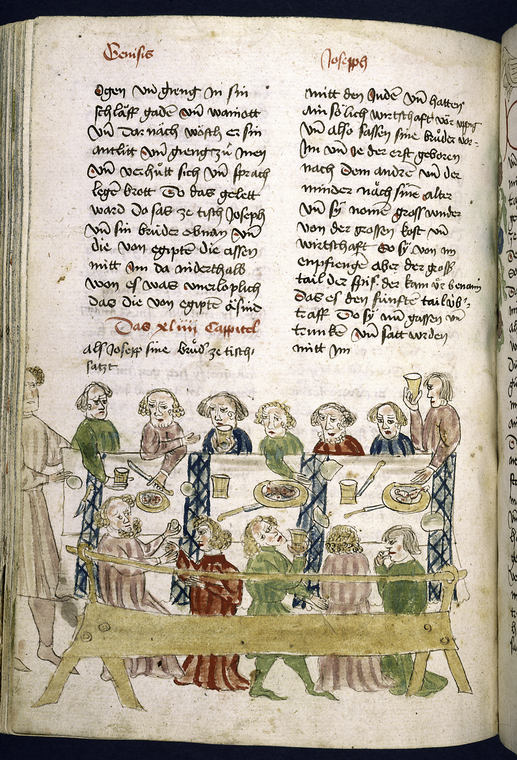 Genisis
ogen vnd gieng In sin
schlàff gaden vnd wainott
vnd Dar nach wosch er sin
antlút vnd gieng zu Inen
vnd verhùtt sich vnd sprach
legent brott Do das gelett
ward do sas ze tisch Joseph
vnd sin brùder ebnan vnd
die von egipte die assen
mitt Im da niderthalb
won es was vnerloplich
das die von egipte àsind
Das xliiii Cappitel
als Josepp sine brùd ze tisch
satzt
Joseph
mitt den Juden vnd hatten
ain sólich wirtschaft vor
vnd also sassen sine brùder vor
Im vnd ie der erst geboren
nach dem andren vnd der
minder nàch sine alter
vnd sy nomen gross wunder
von der grossen kost vnd
wirtschaft So sy von im
enpfiengen aber der gross
tail der spis der kam
das es den fúnften tail
traff Do sy vnd
trunken vnd satt wrden
mitt Im